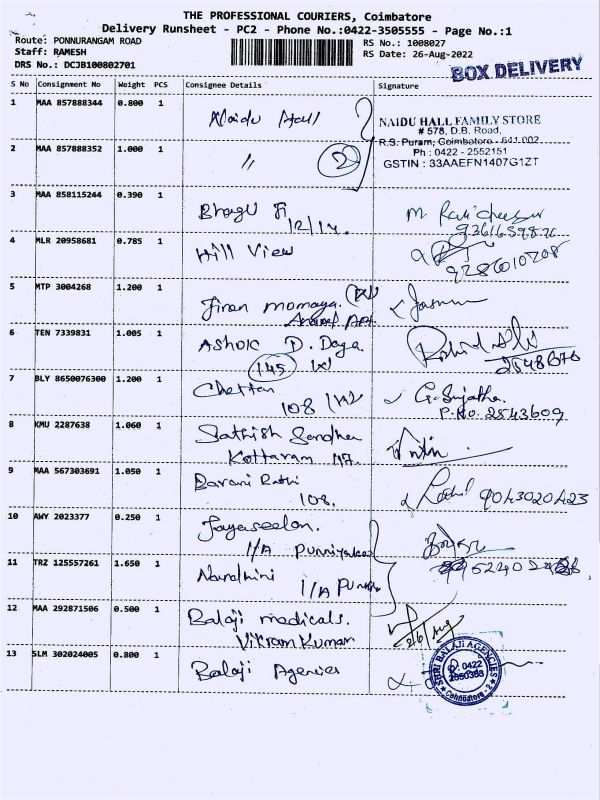 THE PROFESSIONAL COURIERS, Coimbatore
Delivery Runsheet - PC2 - Phone No.:0422-3505555 - Page No.:1
Route: PONNURANGAM ROAD
Staff: RAMESH
DRS No.: DCJB100802701
RS No.: 1008027
RS Date: 26-Aug-2022
BOX DELIVERY
S No Consignment No Weight PCS Consignee Details Signature
1 MAA 857888344 0.800 1 Naidu Hall
NAIDU HALL FAMILY STORE
# 578, D.B. Road,
R.S. Puram, Coimbatore - 641 002
Ph : 0422 - 2552151
GSTIN : 33AAEFN1407G1ZT
2 MAA 857888352 1.000 1 〃 2
3 MAA 858115244 0.390 1
12/14
4 MLR 20958681 0.785 1 Hill View
9286010708
5 MTP 3004268 1.200 1 Jiran momaya
6 TEN 7339831 1.005 1 Ashok D. Daga
145
7 BLY 8650076300 1.200 1 Chettan
108
G. Sujatha
P.No. 2543609
8 KMU 2287638 1.060 1 Sathish
Kottaram
9 MAA 567303691 1.050 1 Barani Rathi
108.
9043020423
10 AWY 2023377 0.250 1 Jayaseelan.
1/A
11 TRZ 125557261 1.650 1 Nandhini
1/A
12 MAA 292871506 0.500 1 Balaji medicals.
Vikram Kumar
13 SLM 302024005 0.800 1 Balaji Agencies
SHRI BALAJI AGENCIES
0422
Coimbatore - 2